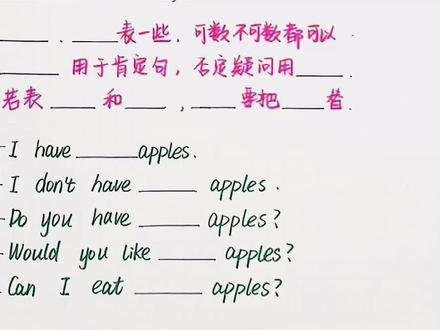 ____、____表一些,可数不可数都可以.
____ 用于肯定句,否定疑问用____.
若表____和____,____要把____替.
-I have ____ apples.
-I don't have ____ apples.
-Do you have ____ apples?
-Would you like ____ apples?
-Can I eat ____ apples?